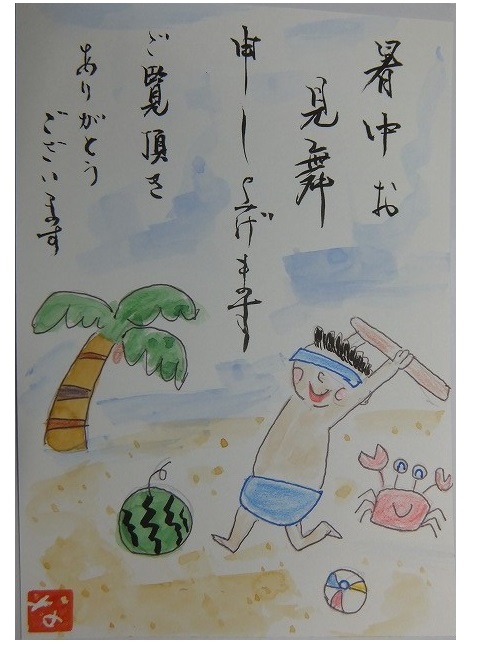 暑中お
見舞
申し上げます
ご覧頂き
ありがとう
ございます